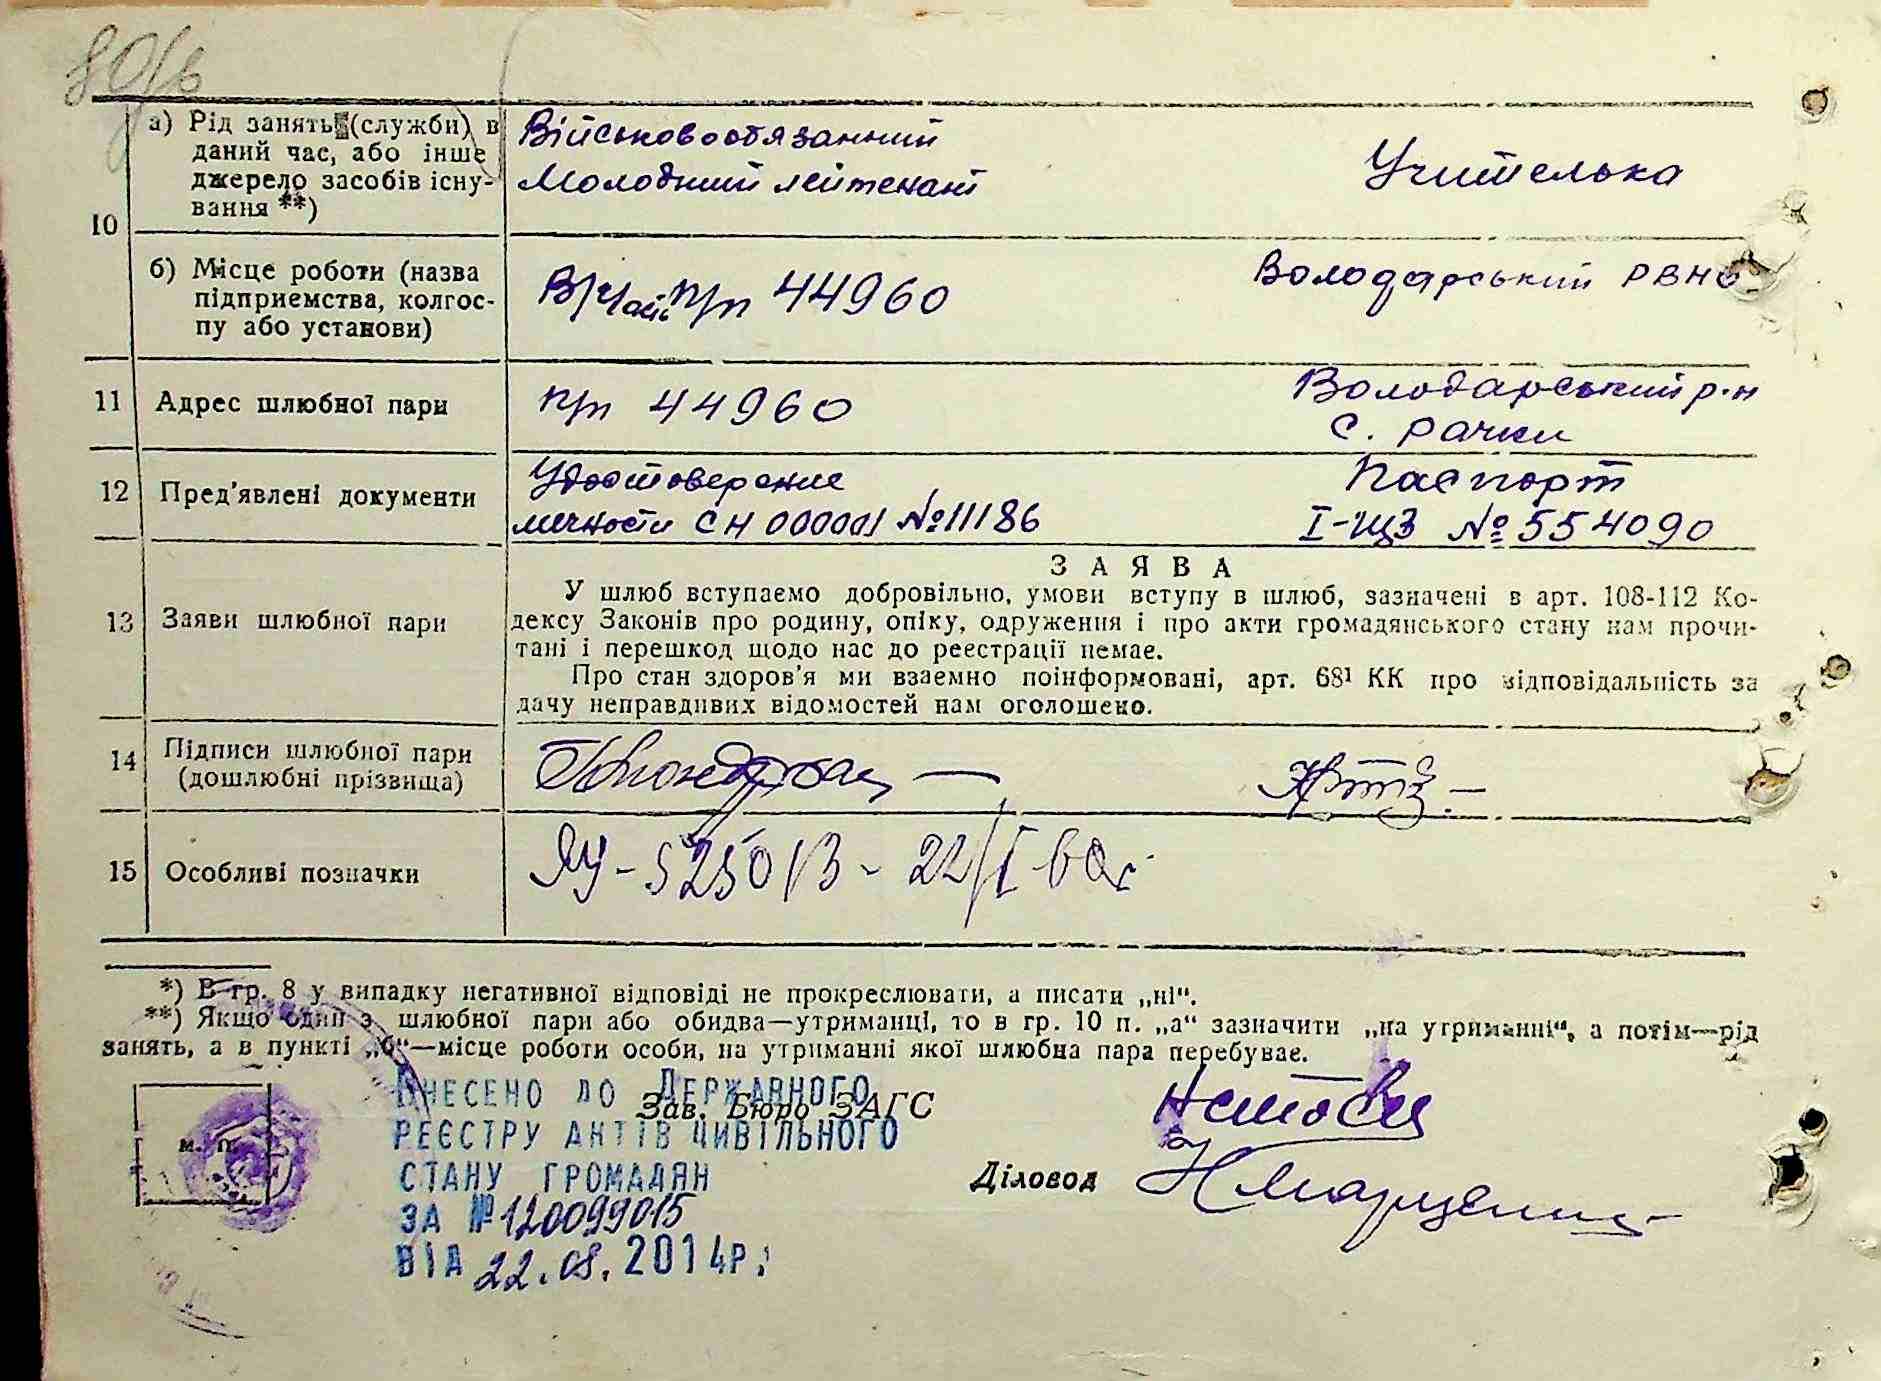 10
а) Рід занять (служби) в
даний час, або інше
джерело засобів існу-
вання **)
Військовообязанний
Молодший лейтенант
Учителька
б) Місце роботи (назва
підприємства, колгос-
пу або установи)
В/Часть п/п 44960
Володарський РВНО
11
Адрес шлюбної пари
п/п 44960
Володарський р-н
с. Рачки
12
Пред'явлені документи
Удостоверение
личности СН 000001 №11186
Паспорт
I-ЩЗ № 554090
13
Заяви шлюбної пари
ЗАЯВА
У шлюб вступаємо добровільно, умови вступу в шлюб, зазначені в арт. 108-112 Ко-
дексу Законів про родину, опіку, одруження і про акти громадянського стану нам прочи-
тані і перешкод щодо нас до реєстрації немає.
Про стан здоров'я ми взаємно поінформовані, арт. 68¹ КК про відповідальність за
дачу неправдивих відомостей нам оголошено.
14
Підписи шлюбної пари
(дошлюбні прізвища)
15
Особливі позначки
ЯУ-525013 - 22/I
*) В гр. 8 у випадку негативної відповіді не прокреслювати, а писати „ні“.
**) Якщо один з шлюбної пари або обидва—утриманці, то в гр. 10 п. „а“ зазначити „на утриманні“, а потім—рід
занять, а в пункті „б“—місце роботи особи, на утриманні якої шлюбна пара перебуває.
м. п.
Зав. Бюро ЗАГС
Діловод
ВНЕСЕНО ДО ДЕРЖАВНОГО
РЕЄСТРУ АКТІВ ЦИВІЛЬНОГО
СТАНУ ГРОМАДЯН
ЗА №120099015
ВІД 22.08.2014р.